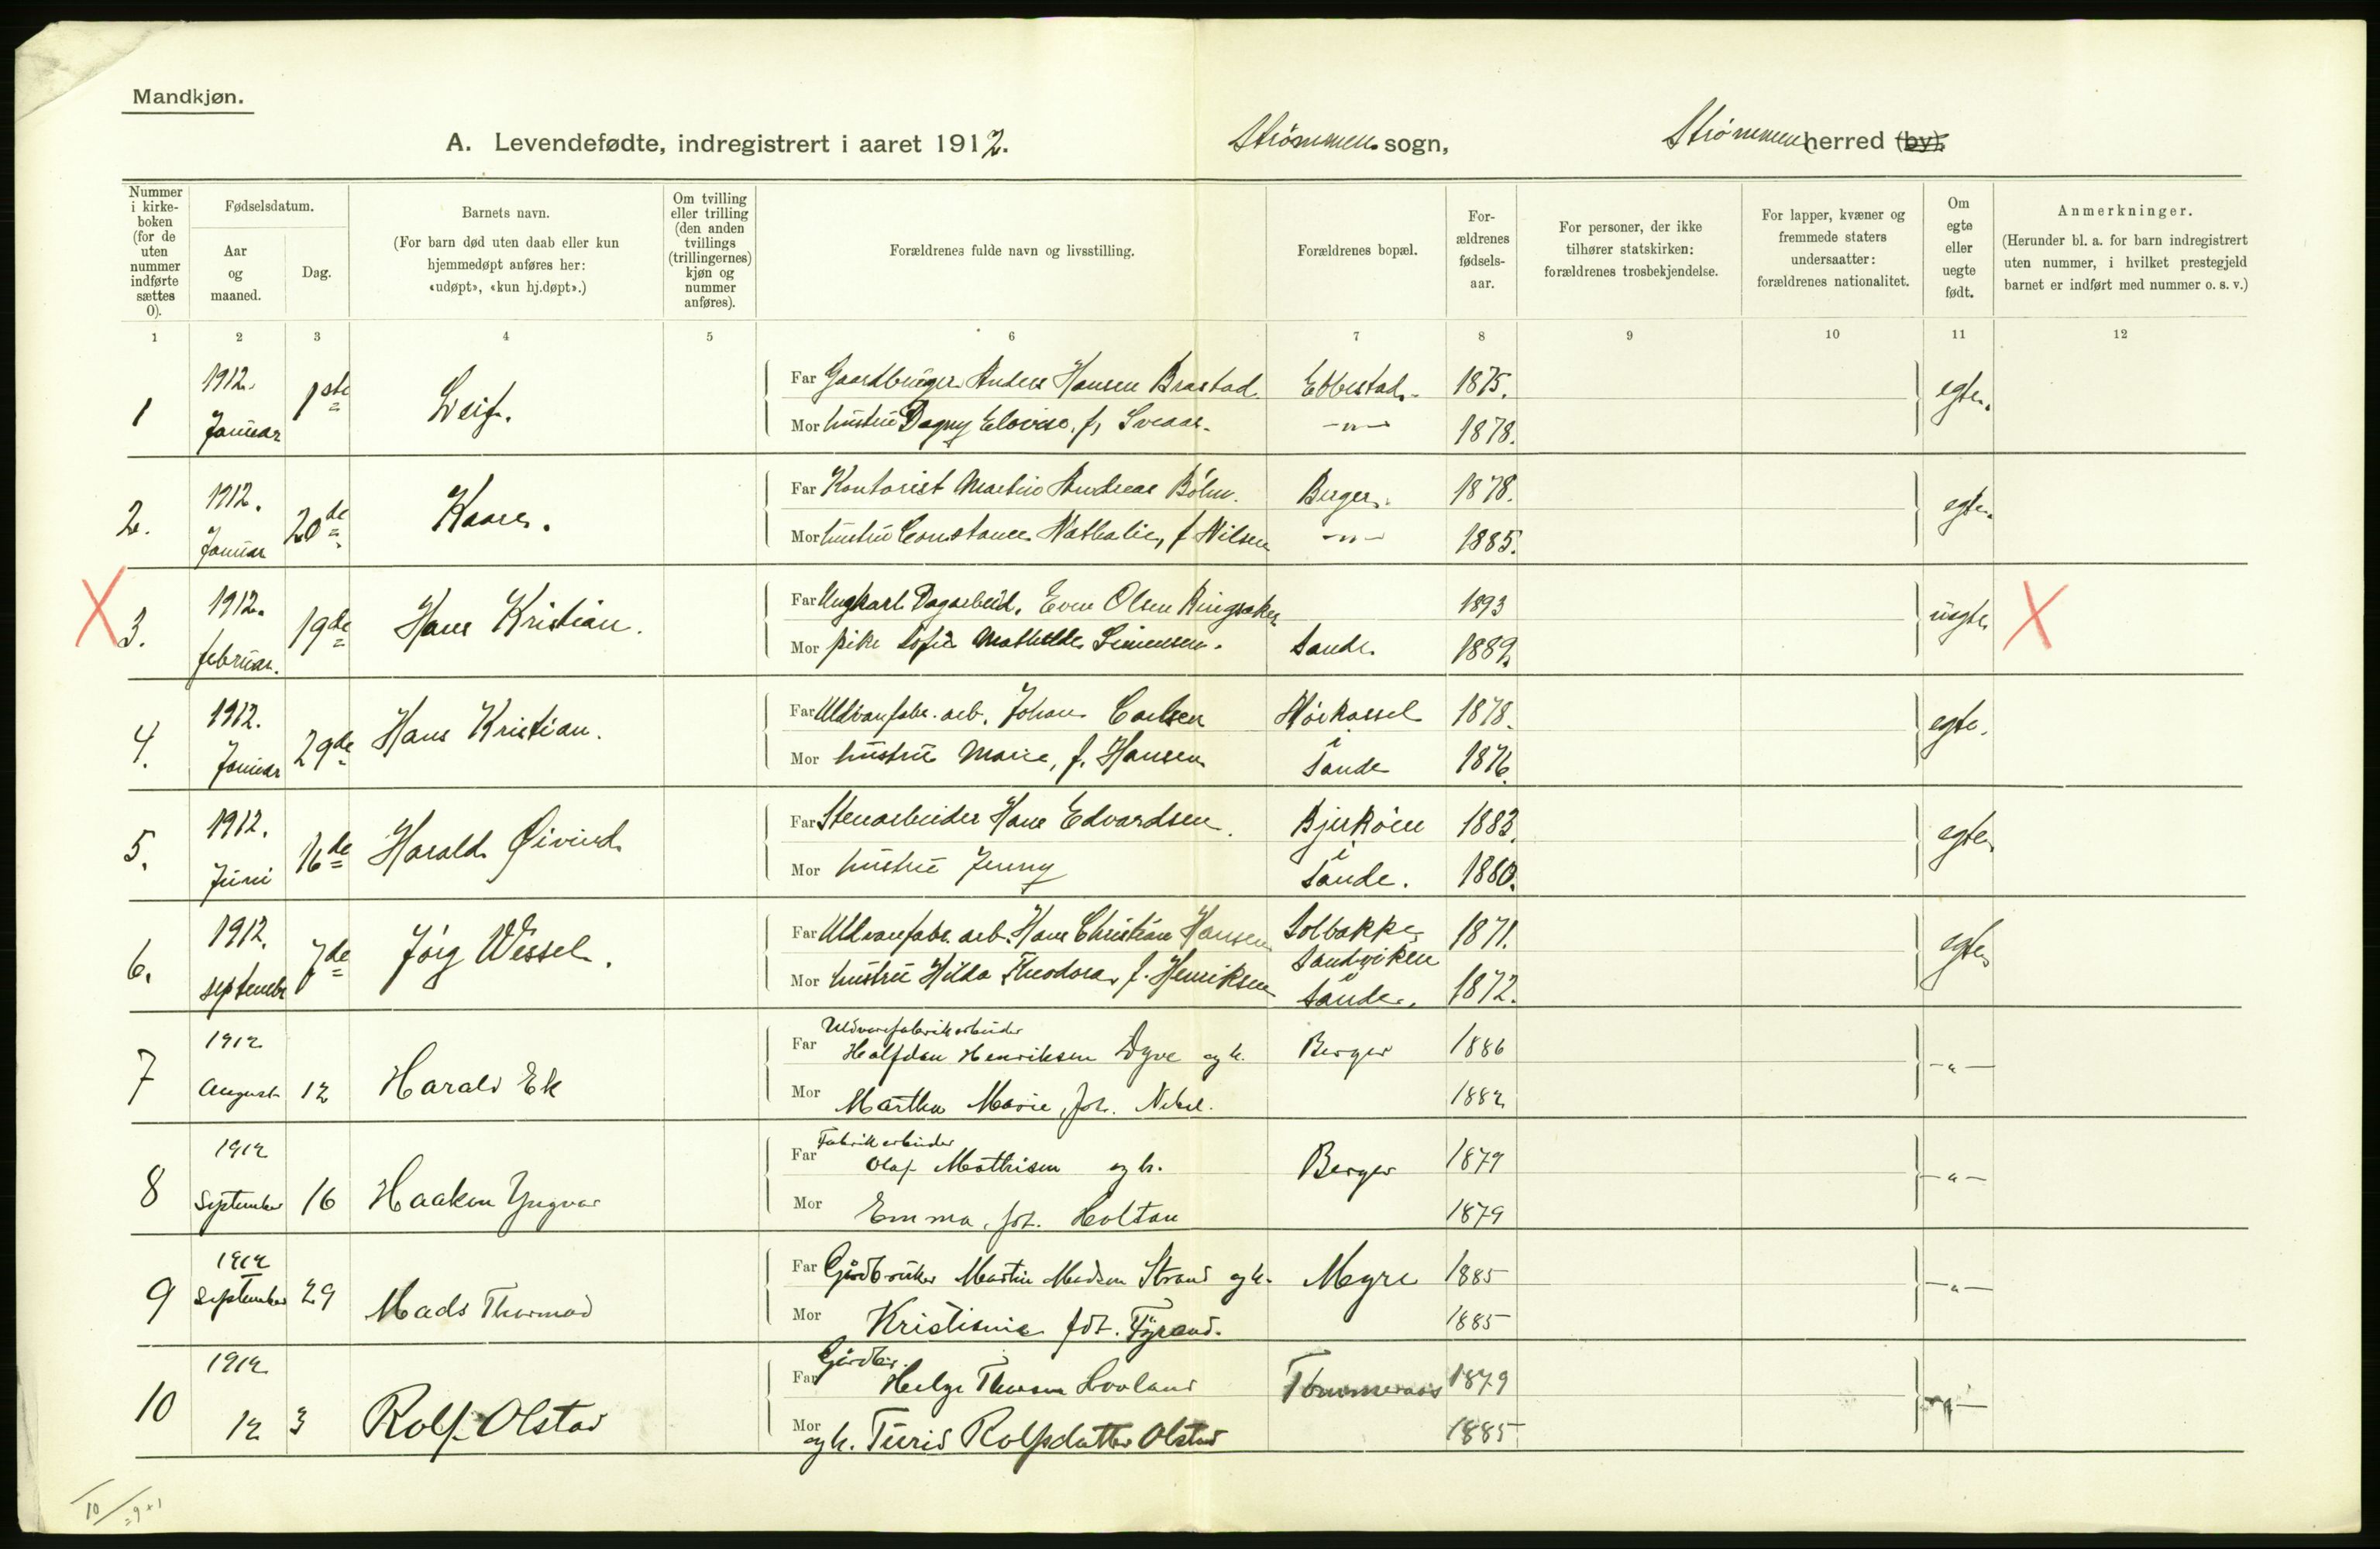 Mandkjøn.
A. Levendefødte, indregistrert i aaret 1912. Strømmen sogn, Strømmen herred (by).
Nummer i kirkeboken (for de uten nummer indførte sættes 0).
Fødselsdatum.
Aar og maaned.
Dag.
Barnets navn.
(For barn død uten daab eller kun hjemmedøpt anføres her: «udøpt», «kun hj.døpt».)
Om tvilling eller trilling (den anden tvillings (trillingernes) kjøn og nummer anføres).
Forældrenes fulde navn og livsstilling.
Forældrenes bopæl.
Forældrenes fødselsaar.
For personer, der ikke tilhører statskirken: forældrenes trosbekjendelse.
For lapper, kvæner og fremmede staters undersaatter: forældrenes nationalitet.
Om egte eller uegte født.
Anmerkninger.
(Herunder bl. a. for barn indregistrert uten nummer, i hvilket prestegjeld barnet er indført med nummer o. s. v.)
1 2 3 4 5 6 7 8 9 10 11 12
1 1912. Januar 1ste Leif. Far Gaardbruger Anders Hansen Brastad Ebbestad. 1875. egte.
Mor hustru Dagny f. Sveaas. -"- 1878.
2. 1912. Januar 20de Kaare. Far Kontorist Martin Andreas Böhn. Berger. 1878. egte.
Mor hustru Constance Nathalie, f Nilsen -"- 1885.
X 3. 1912. februar. 19de Hans Kristian. Far Ungkarl Dagarbeid. Even Olsen Ringsaker 1893 uegte X
Mor pike Sofie Mathilde Simensen. Sande. 1889.
4. 1912. Januar 29de Hans Kristian. Far Uldvarefabr. arb. Johan Carlsen 1878. egte.
Mor hustru Marie, f. Hansen i Sande 1876.
5. 1912. Juni 16de Harald Øivind. Far Stenarbeider Hans Edvardsen. Bjerköen 1883. egte
Mor hustru Jenny i Sande. 1880.
6. 1912. septembr 7de Jörg Wessel. Far Uldvarefabr. arb. Hans Christian Hansen Solbakken Sandviken 1871. egte
Mor hustru Hilda Theodora, f. Henriksen i Sande. 1872.
7 1912 August 12 Harald Ek Far Uldvarefabrikarbeider
Halfdan Henriksen Dyve og h. Berger 1886 -"-
Mor Martha Marie, föt. 1882
8 1912 September 16 Haakon Yngvar Far Fabrikarbeider
Olaf Mathisen og h. Berger 1879 -"-
Mor Emma, föt. Holtan 1879
9 1912 September 29 Mads Thormod Far Gårdbruker Martin Madsen Strand og h. Myre 1885 -"-
Mor Kristiane föt. 1885
10 1912 12 3 Rolf Olstad Far Gårdbr.
Helge Thorsen Tømmeraas 1879 -"-
Mor og h. Turid Rolfsdatter Olstad 1885
10 = 9 + 1